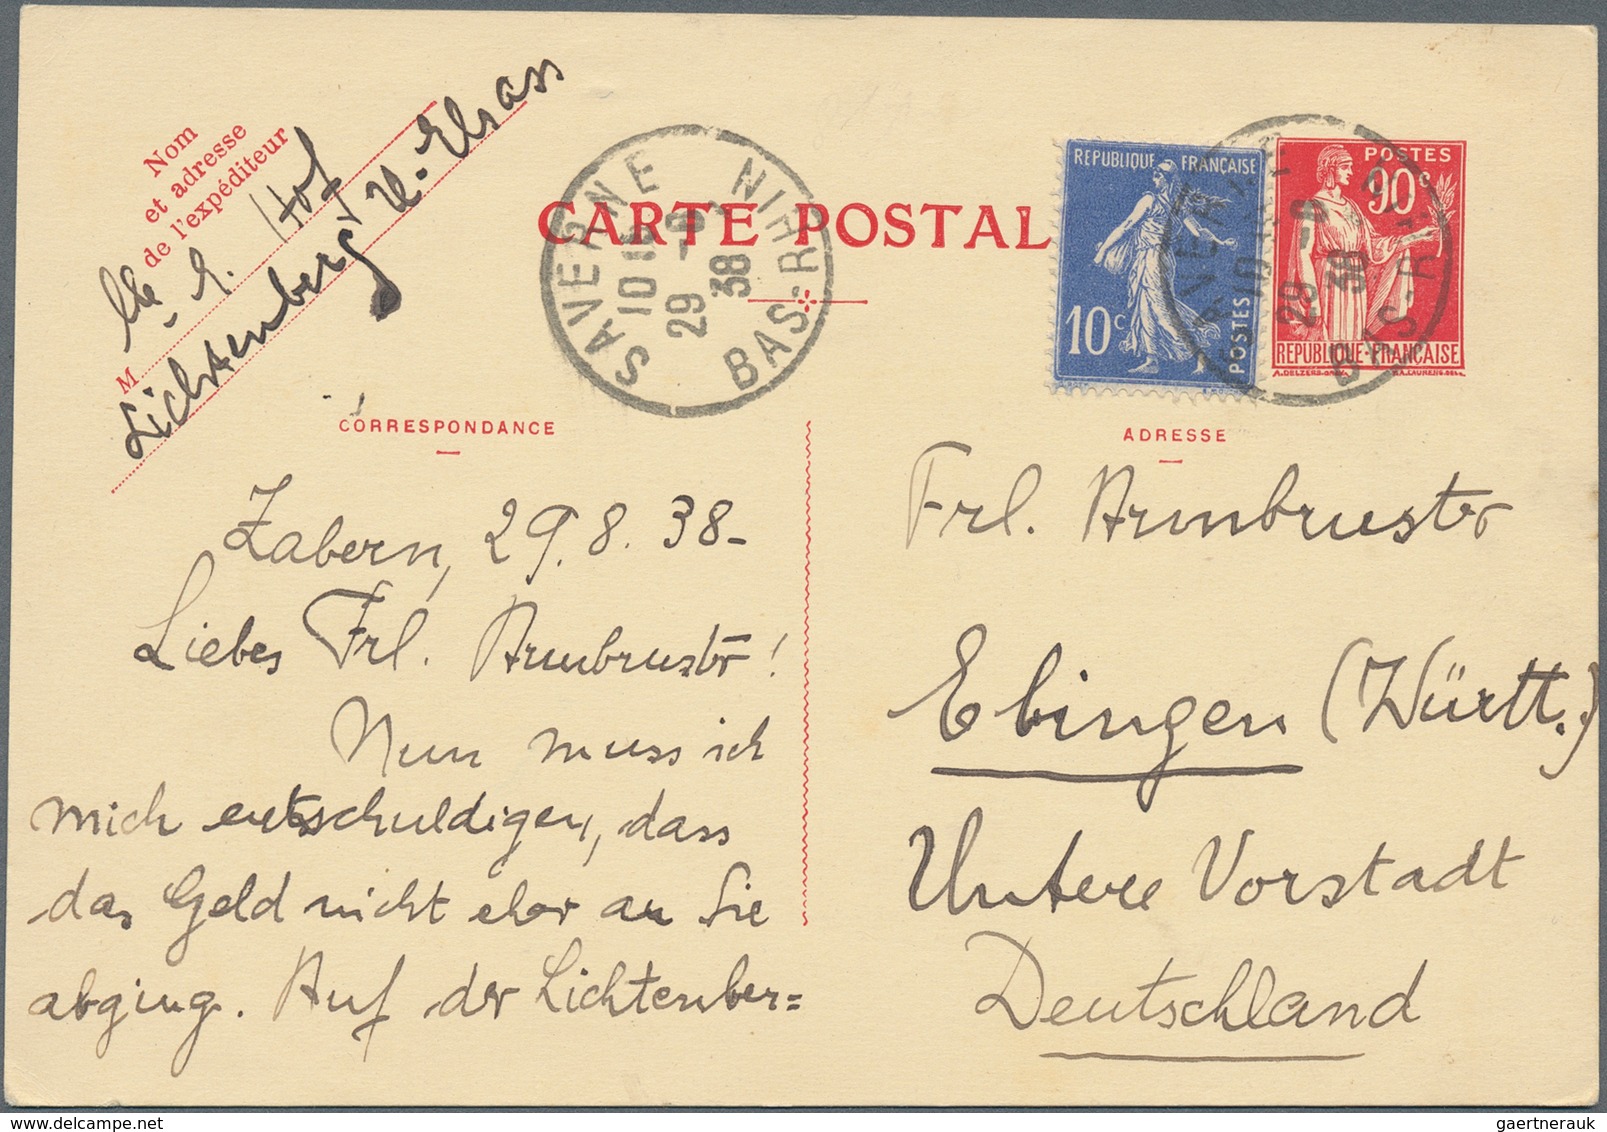 Nom
et adresse
de l'expéditeur
Mlle S. Hof
M
Lichtenberg U. Elsass
CARTE POSTAL
SAVERNE BAS-RHIN
10 15
29 -8
38
REPUBLIQUE FRANÇAISE
10c
POSTES
POSTES
90c
REPUBLIQUE FRANÇAISE
SAVERNE BAS-RHIN
29 -8
38
CORRESPONDANCE
Zabern, 29.8.38-
Liebes Frl. Armbruster!
Nun muss ich
mich entschuldigen, dass
das Geld nicht eher an Sie
abging. Auf der Lichtenber=
ADRESSE
Frl. Armbruster
Ebingen (Württ.)
Untere Vorstadt
Deutschland
gaertnerauk @ delcampe.net